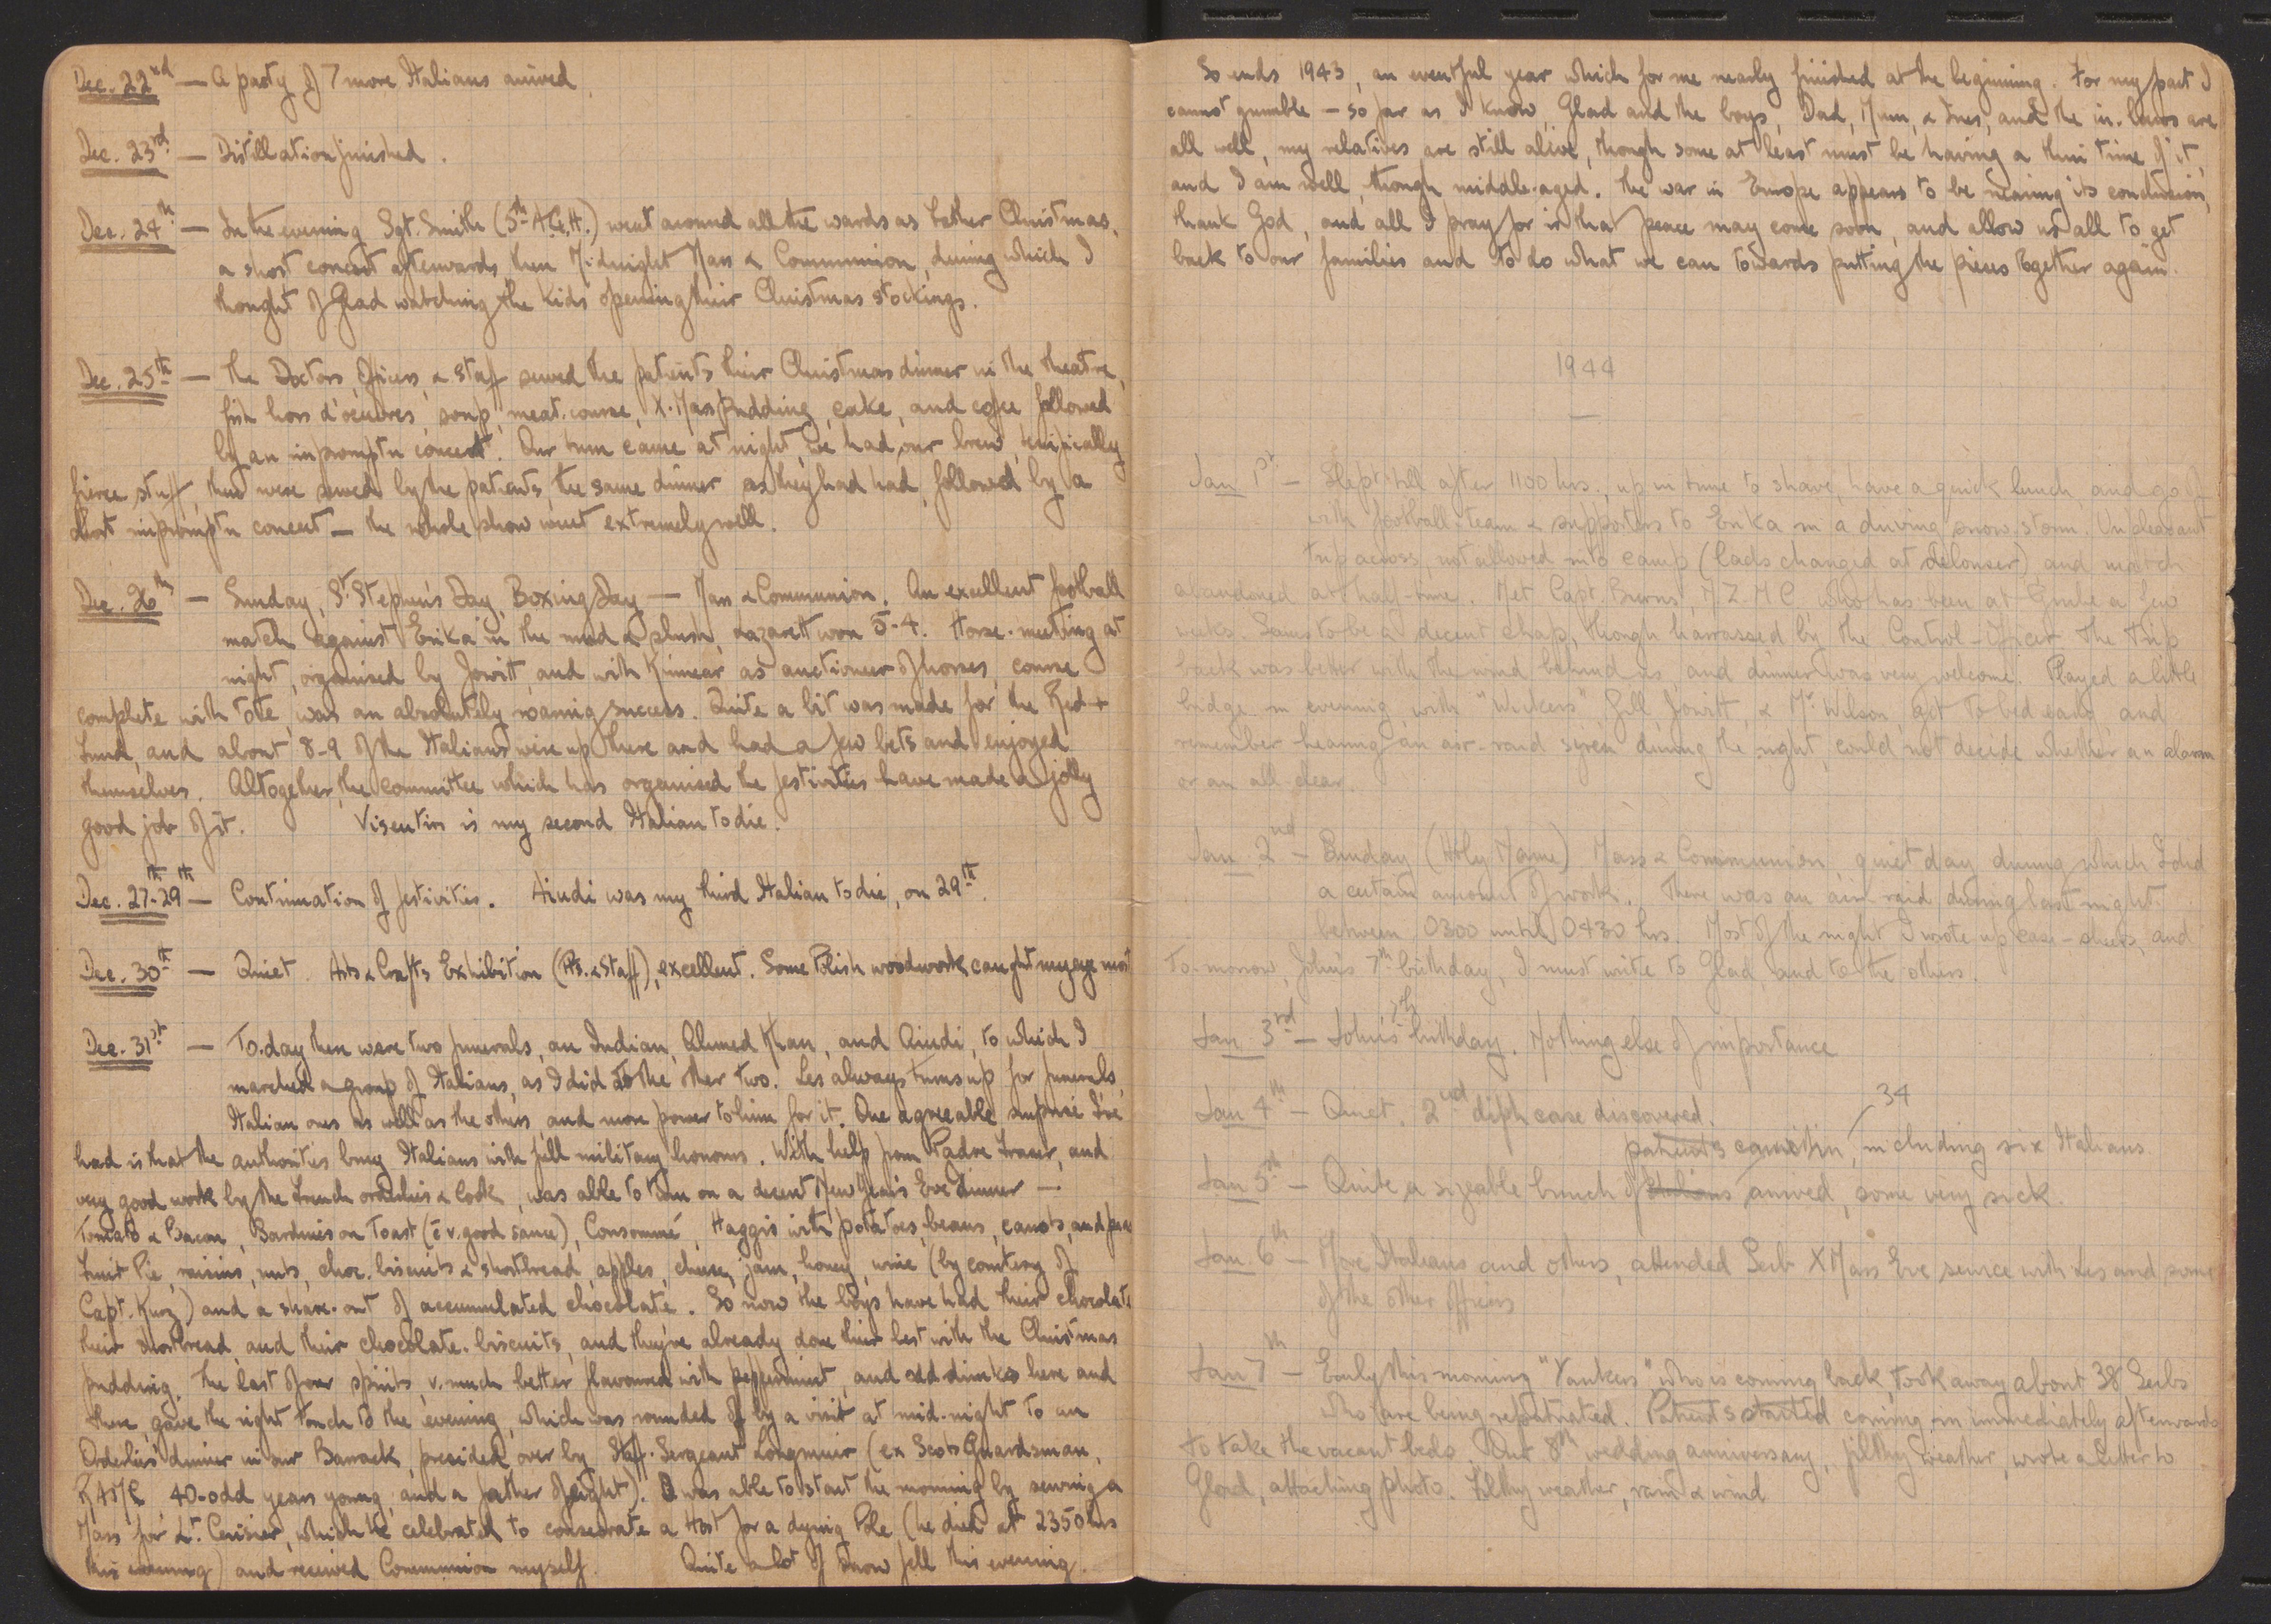 Dec. 22nd — A party of 7 more Italians arrived.
Dec. 23rd — Distillation finished.
Dec. 24th — In the evening Sgt. Smith (5th A.G.H.) went around all the wards as Father Christmas,
a short concert afterwards, then Midnight Mass & Communion, during which I
thought of Glad watching the kids opening their Christmas stockings.
Dec. 25th — The Doctors, Officers & Staff served the patients their Christmas dinner in the theatre,
fish hors d'oeuvres, soup, meat-course, X-Mas Pudding, cake, and coffee followed
by an impromptu concert. Our turn came at night, we had our brew, typically
fierce stuff, then were served by the patients, the same dinner as they had had, followed by a
short impromptu concert — the whole show went extremely well.
Dec. 26th — Sunday, St. Stephen's Day, Boxing Day — Mass & Communion. An excellent football
match against Erika in the mud & slush, Lazarett won 5-4. Horse-meeting at
night, organised by Jowitt, and with Kinnear as auctioneer of horses, course
complete with tote, was an absolutely roaring success. Quite a bit was made for the Red +
Fund, and about 8-9 of the Italians were up there and had a few bets and enjoyed
themselves. Altogether, the committee which has organised the festivities have made a jolly
good job of it. Visentin is my second Italian to die.
Dec. 27th-29th — Continuation of festivities. Aiudi was my third Italian to die, on 29th.
Dec. 30th — Quiet. Arts & Crafts Exhibition (Pts. & Staff), excellent. Some Polish woodwork caught my eye most
Dec. 31st — To-day there were two funerals, an Indian, Ahmed Khan, and Aiudi, to which I
marched a group of Italians, as I did to the other two. Les always turns up for funerals,
Italian ones as well as the others, and more power to him for it. One agreeable surprise I've
had is that the authorities bury Italians with full military honours. With help from Padre Fraser, and
very good work by the French orderlies & cook, was able to turn on a decent New Year's Eve Dinner —
Tomato & Bacon, Sardines on Toast (c̄ v. good sauce), Consommé, Haggis with potatoes, beans, carrots, and peas
Fruit Pie, raisins, nuts, choc. biscuits & shortbread, apples, cheese, jam, honey, wine (by courtesy of
Capt. Kurz) and a share-out of accumulated chocolate. So now the boys have had their chocolate
their shortbread, and their chocolate-biscuits, and they've already done their best with the Christmas
pudding. The last of our spirits, v. much better flavoured with peppermint, and odd drinks here and
there, gave the right touch to the evening, which was rounded off by a visit at mid-night to an
Orderlies' dinner in our Barrack, presided over by Staff-Sergeant Longmuir (ex Scots Guardsman,
RAMC, 40-odd years young, and a father of eight). I was able to start the morning by serving a
Mass for Lt. Cerisier, which he celebrated to consecrate a Host for a dying Pole (he died at 2350 hrs
this evening) and received Communion myself. Quite a lot of snow fell this evening.
So ends 1943, an eventful year which for me nearly finished at the beginning. For my part I
cannot grumble — so far as I know, Glad and the boys, Dad, Mum, & Ines, and the in-laws are
all well, my relatives are still alive, though some at least must be having a thin time of it,
and I am well, though middle-aged. The war in Europe appears to be nearing its conclusion,
thank God, and all I pray for is that peace may come soon, and allow us all to get
back to our families and to do what we can towards putting the pieces together again.
1944
Jan 1st — Slept till after 1100 hrs., up in time to shave, have a quick lunch, and go off
with football-team & supporters to Erika in a driving snow-storm. Unpleasant
trip across, not allowed into camp (lads changed at delouser) and match
abandoned at half-time. Met Capt. Burns, N.Z.M.C. who has been at Grube a few
weeks. Seems to be a decent chap, though harrassed by the Control-Officer. The trip
back was better with the wind behind us, and dinner was very welcome. Played a little
bridge in evening with "Wickers", Gill, Jowitt, & Mr. Wilson, got to bed early, and
remember hearing an air-raid syren during the night, could not decide whether an alarm
or an all-clear
Jan 2nd — Sunday (Holy Name) Mass & Communion, quiet day during which I did
a certain amount of work. There was an air raid during last night
between 0300 until 0430 hrs. Most of the night I wrote up case-sheets, and
To-morrow, John's 7th birthday, I must write to Glad, and to the others.
Jan 3rd — John's 7th birthday. Nothing else of importance
Jan 4th — Quiet. 2nd diph case discovered.
34
patients came in, including six Italians.
Jan 5th — Quite a sizeable bunch of Italians arrived, some very sick.
Jan 6th — More Italians and others, attended Serb XMass Eve service with Les and some
of the other officers
Jan 7th — Early this morning "Yankers", who is coming back, took away about 38 Serbs
who are being repatriated. Patients started coming in immediately afterwards
to take the vacant beds. Our 8th wedding anniversary, filthy weather, wrote a letter to
Glad, attaching photo. Filthy weather, rain & wind